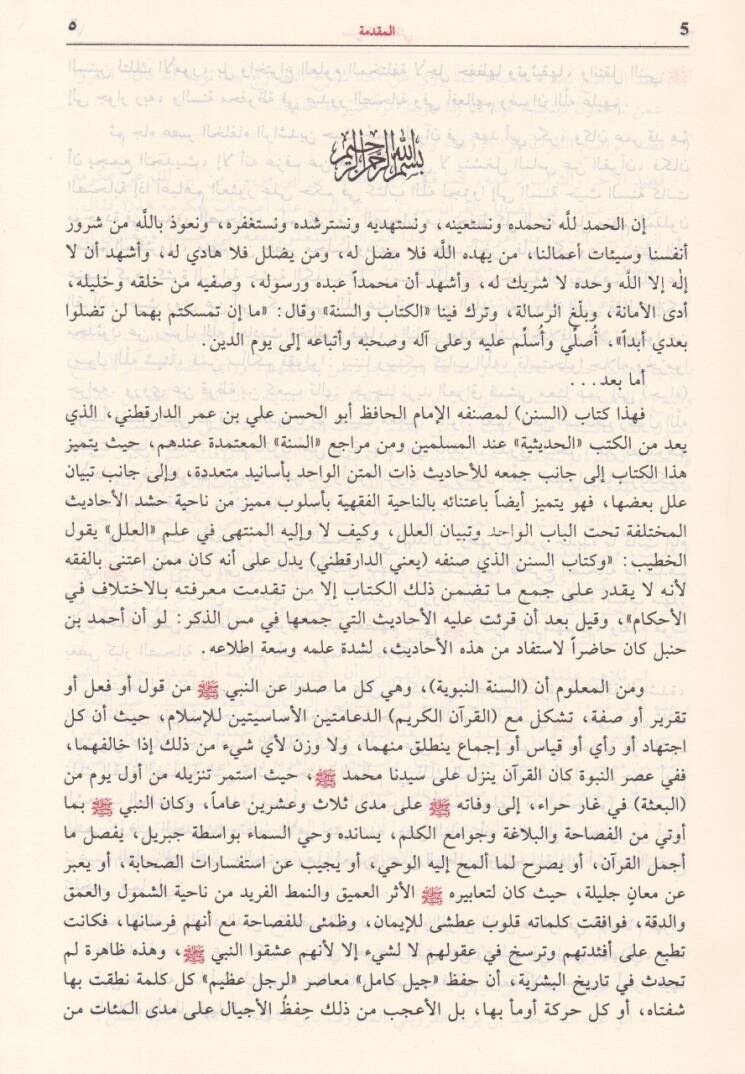 5 المقدمة ٥
بسم الله الرحمن الرحيم
إن الحمد للَّه نحمده ونستعينه، ونستهديه ونسترشده ونستغفره، ونعوذ باللَّه من شرور
أنفسنا وسيئات أعمالنا، من يهده اللَّه فلا مضل له، ومن يضلل فلا هادي له، وأشهد أن لا
إلٰه إلا اللَّه وحده لا شريك له، وأشهد أن محمداً عبده ورسوله، وصفيه من خلقه وخليله،
أدى الأمانة، وبلّغ الرسالة، وترك فينا «الكتاب والسنة» وقال: «ما إن تمسكتم بهما لن تضلوا
بعدي أبداً»، أُصلّي وأُسلّم عليه وعلى آله وصحبه وأتباعه إلى يوم الدين.
أما بعد...
فهذا كتاب (السنن) لمصنفه الإمام الحافظ أبو الحسن علي بن عمر الدارقطني، الذي
يعد من الكتب «الحديثية» عند المسلمين ومن مراجع «السنة» المعتمدة عندهم، حيث يتميز
هذا الكتاب إلى جانب جمعه للأحاديث ذات المتن الواحد بأسانيد متعددة، وإلى جانب تبيان
علل بعضها، فهو يتميز أيضاً باعتنائه بالناحية الفقهية بأسلوب مميز من ناحية حشد الأحاديث
المختلفة تحت الباب الواحد وتبيان العلل، وكيف لا وإليه المنتهى في علم «العلل» يقول
الخطيب: «وكتاب السنن الذي صنفه (يعني الدارقطني) يدل على أنه كان ممن اعتنى بالفقه
لأنه لا يقدر على جمع ما تضمن ذلك الكتاب إلا من تقدمت معرفته بالاختلاف في
الأحكام»، وقيل بعد أن قرئت عليه الأحاديث التي جمعها في مس الذكر: لو أن أحمد بن
حنبل كان حاضراً لاستفاد من هذه الأحاديث، لشدة علمه وسعة اطلاعه.
ومن المعلوم أن (السنة النبوية)، وهي كل ما صدر عن النبي ﷺ من قول أو فعل أو
تقرير أو صفة، تشكل مع (القرآن الكريم) الدعامتين الأساسيتين للإسلام، حيث أن كل
اجتهاد أو رأي أو قياس أو إجماع ينطلق منهما، ولا وزن لأي شيء من ذلك إذا خالفهما،
ففي عصر النبوة كان القرآن ينزل على سيدنا محمد ﷺ، حيث استمر تنزيله من أول يوم من
(البعثة) في غار حراء، إلى وفاته ﷺ على مدى ثلاث وعشرين عاماً، وكان النبي ﷺ بما
أوتي من الفصاحة والبلاغة وجوامع الكلم، يسانده وحي السماء بواسطة جبريل، يفصل ما
أجمل القرآن، أو يصرح لما ألمح إليه الوحي، أو يجيب عن استفسارات الصحابة، أو يعبر
عن معانٍ جليلة، حيث كان لتعابيره ﷺ الأثر العميق والنمط الفريد من ناحية الشمول والعمق
والدقة، فوافقت كلماته قلوب عطشى للإيمان، وظمئى للفصاحة مع أنهم فرسانها، فكانت
تطبع على أفئدتهم وترسخ في عقولهم لا لشيء إلا لأنهم عشقوا النبي ﷺ، وهذه ظاهرة لم
تحدث في تاريخ البشرية، أن حفظ «جيل كامل» معاصر «لرجل عظيم» كل كلمة نطقت بها
شفتاه، أو كل حركة أومأ بها، بل الأعجب من ذلك حِفظُ الأجيال على مدى المئات من